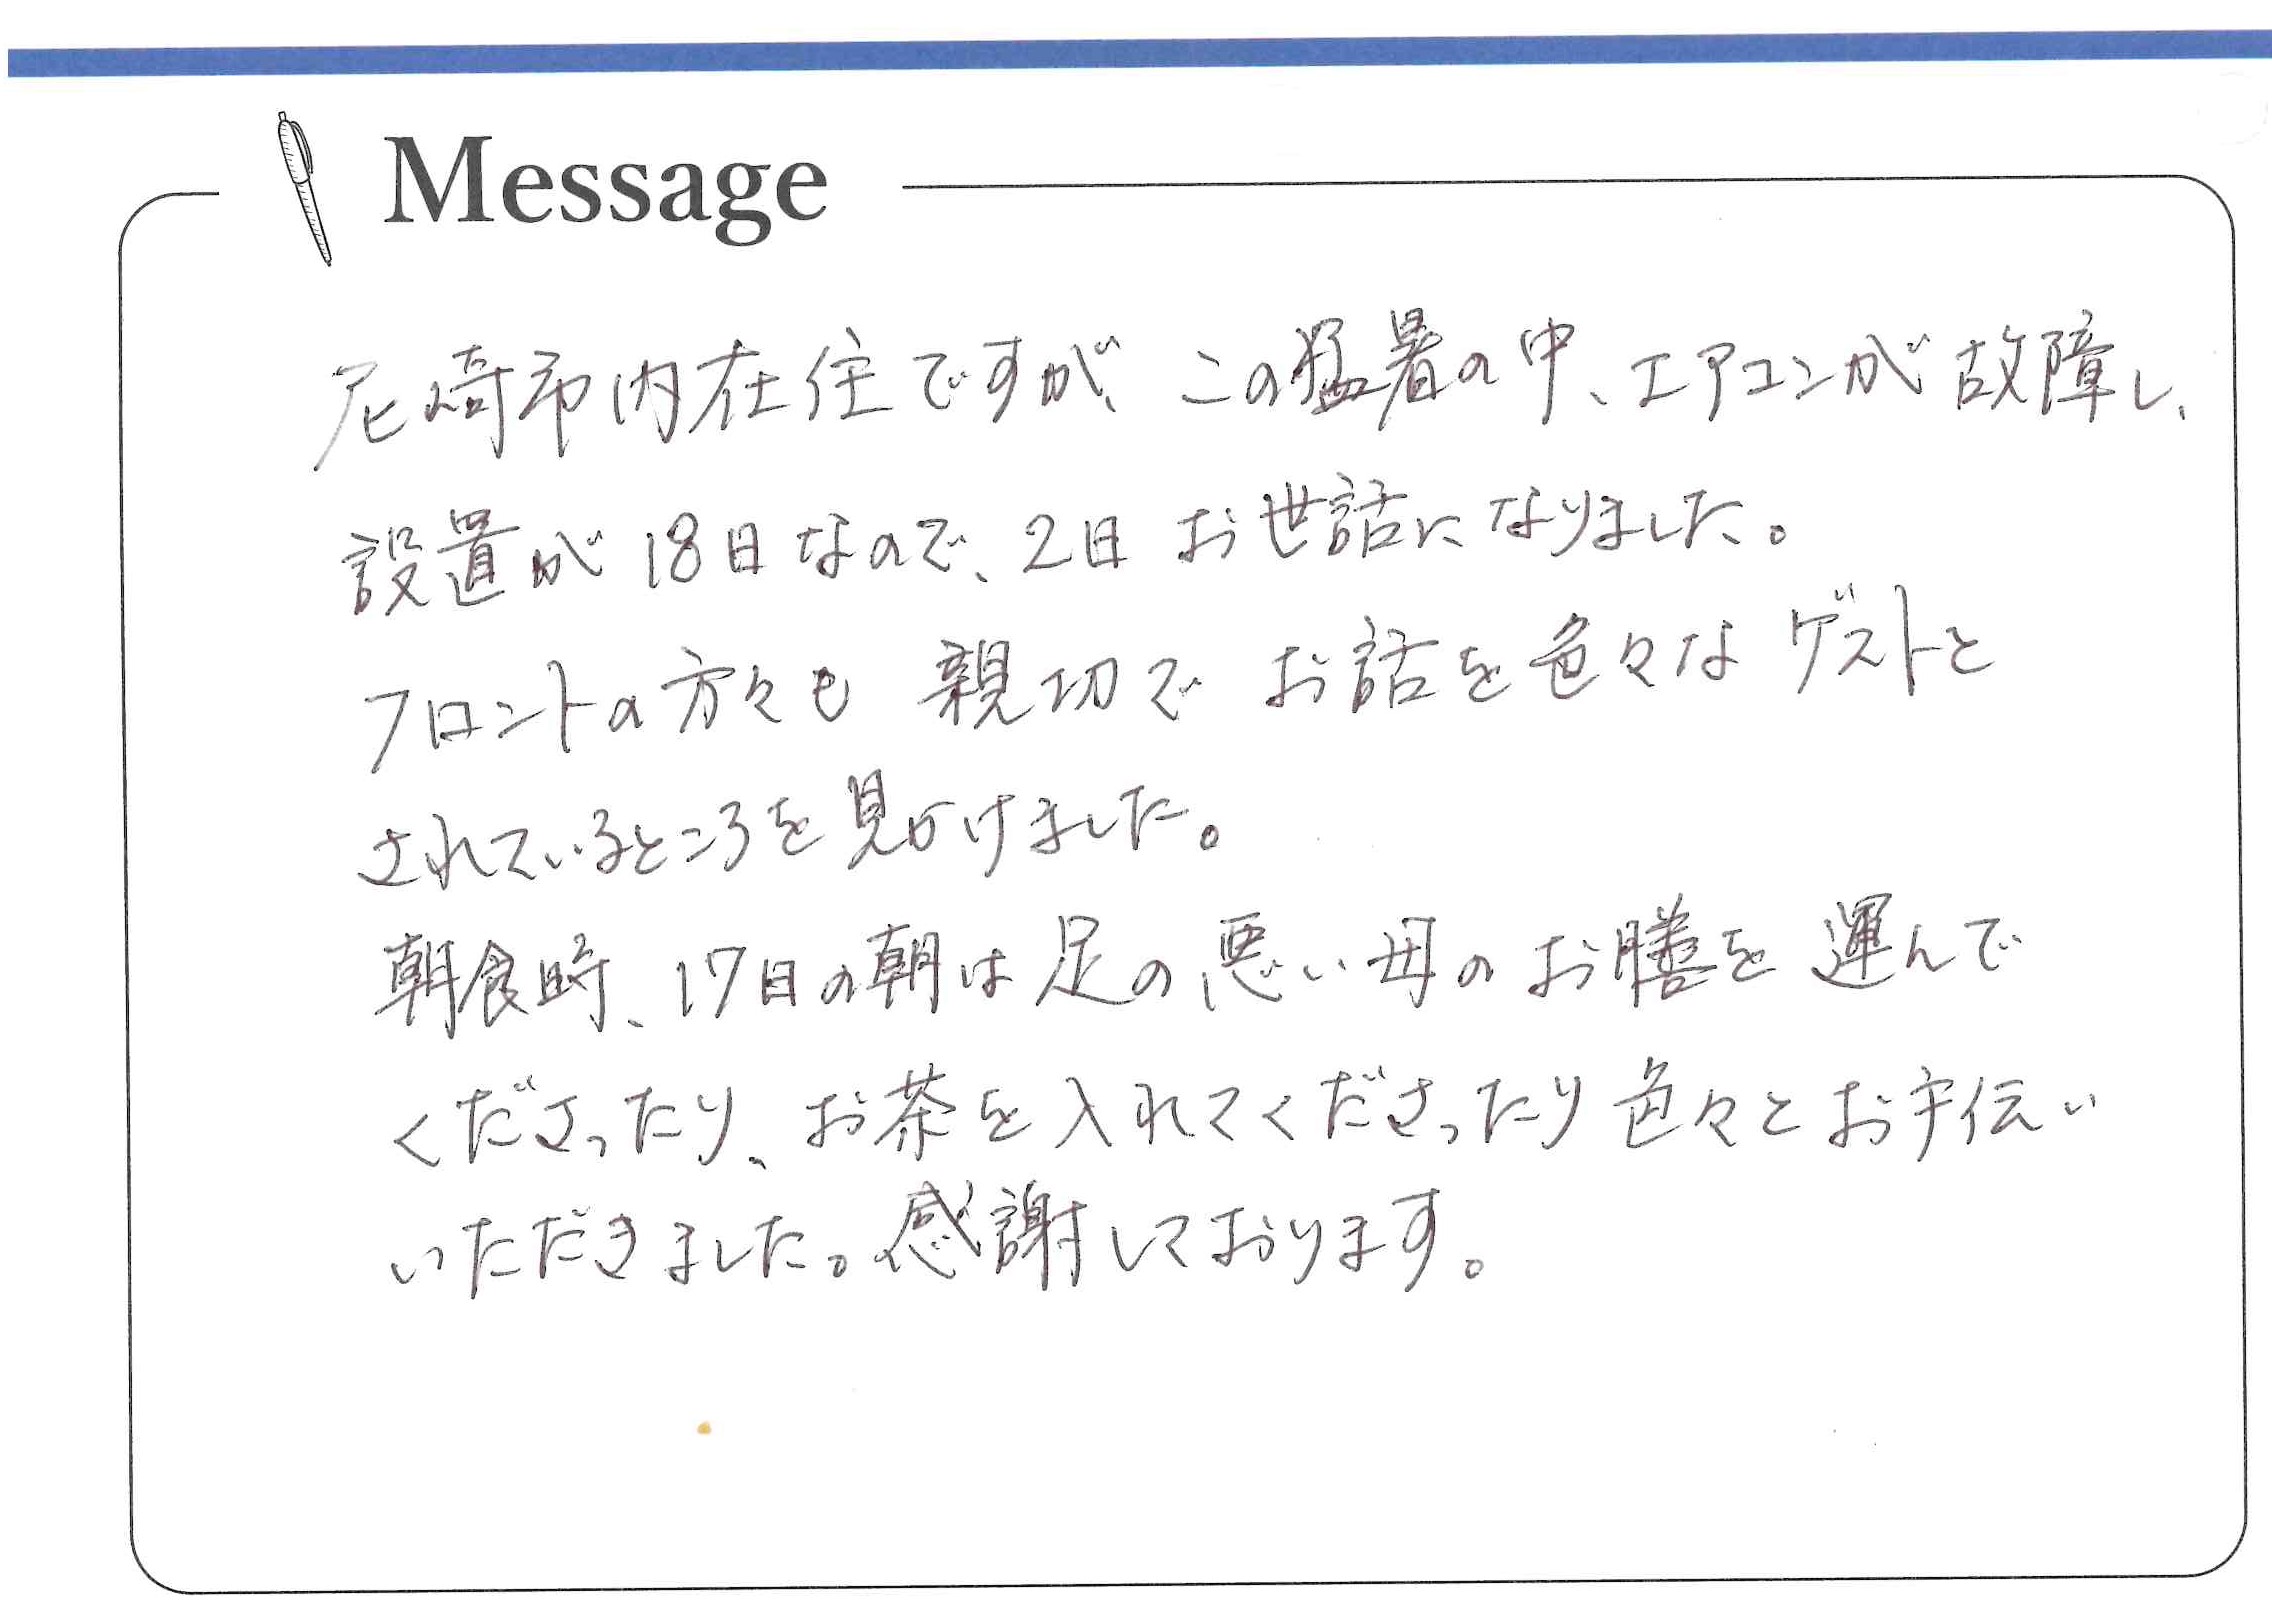 Message
尼崎市内在住ですが、この猛暑の中、エアコンが故障し、
設置が18日なので、2日お世話になりました。
フロントの方々も親切でお話を色々なゲストと
されているところを見かけました。
朝食時、17日の朝は足の悪い母のお膳を運んで
くださったり、お茶を入れてくださったり色々とお手伝い
いただきました。感謝しております。